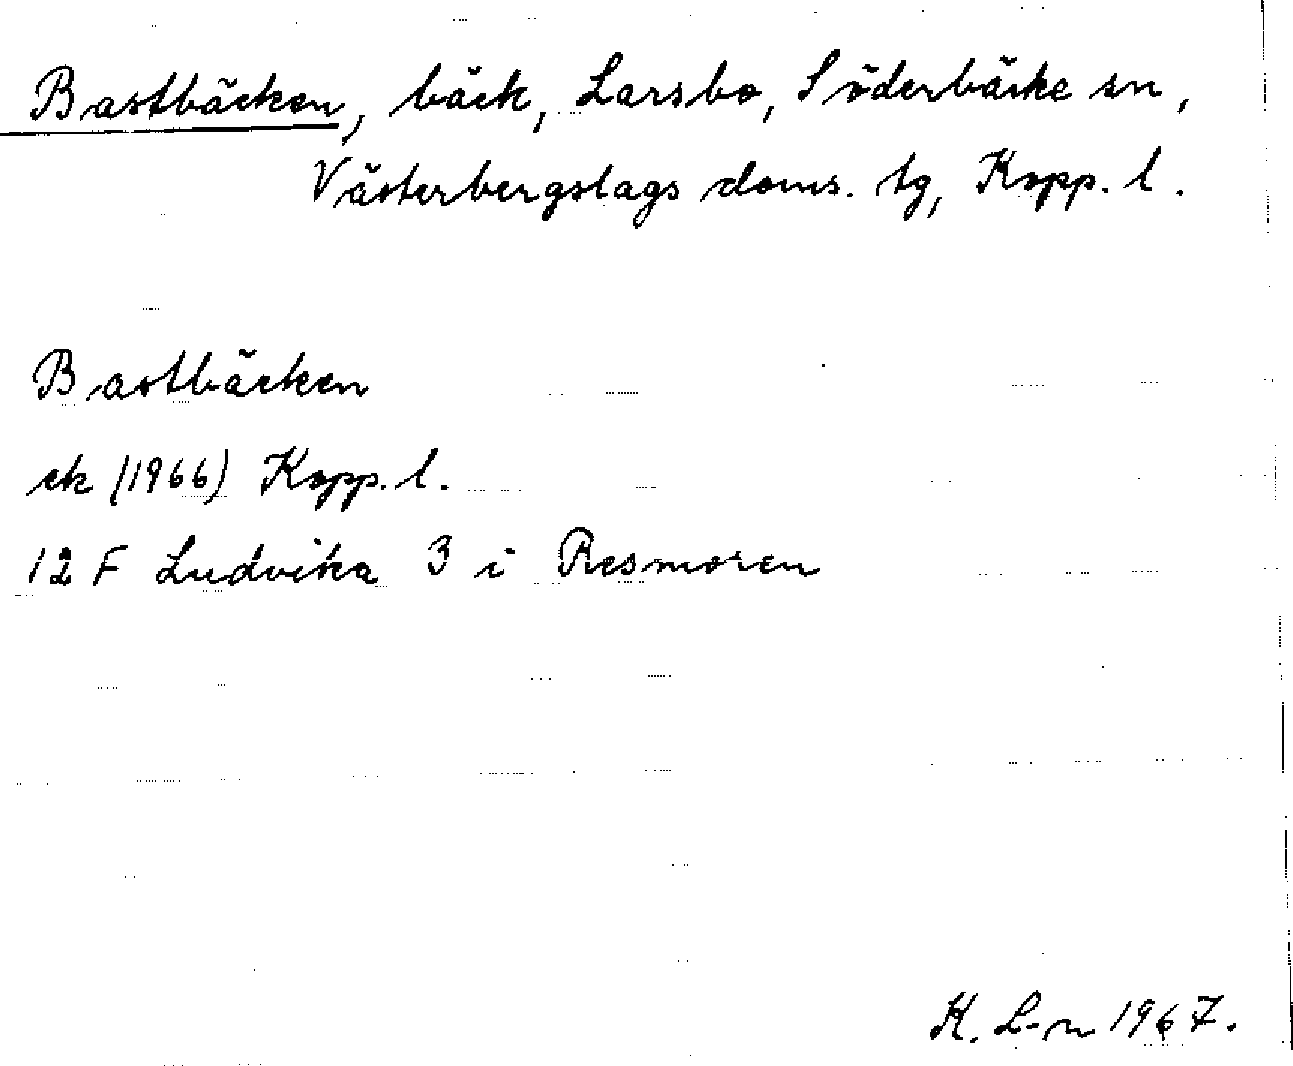 Bastbäcken, bäck, Larsbo, Söderbärke sn,
Västerbergslags doms. tg, Kopp. l.
Bastbäcken
ek (1966) Kopp. l.
12 F Ludvika 3 i Resmoren
K. L-n 1967.